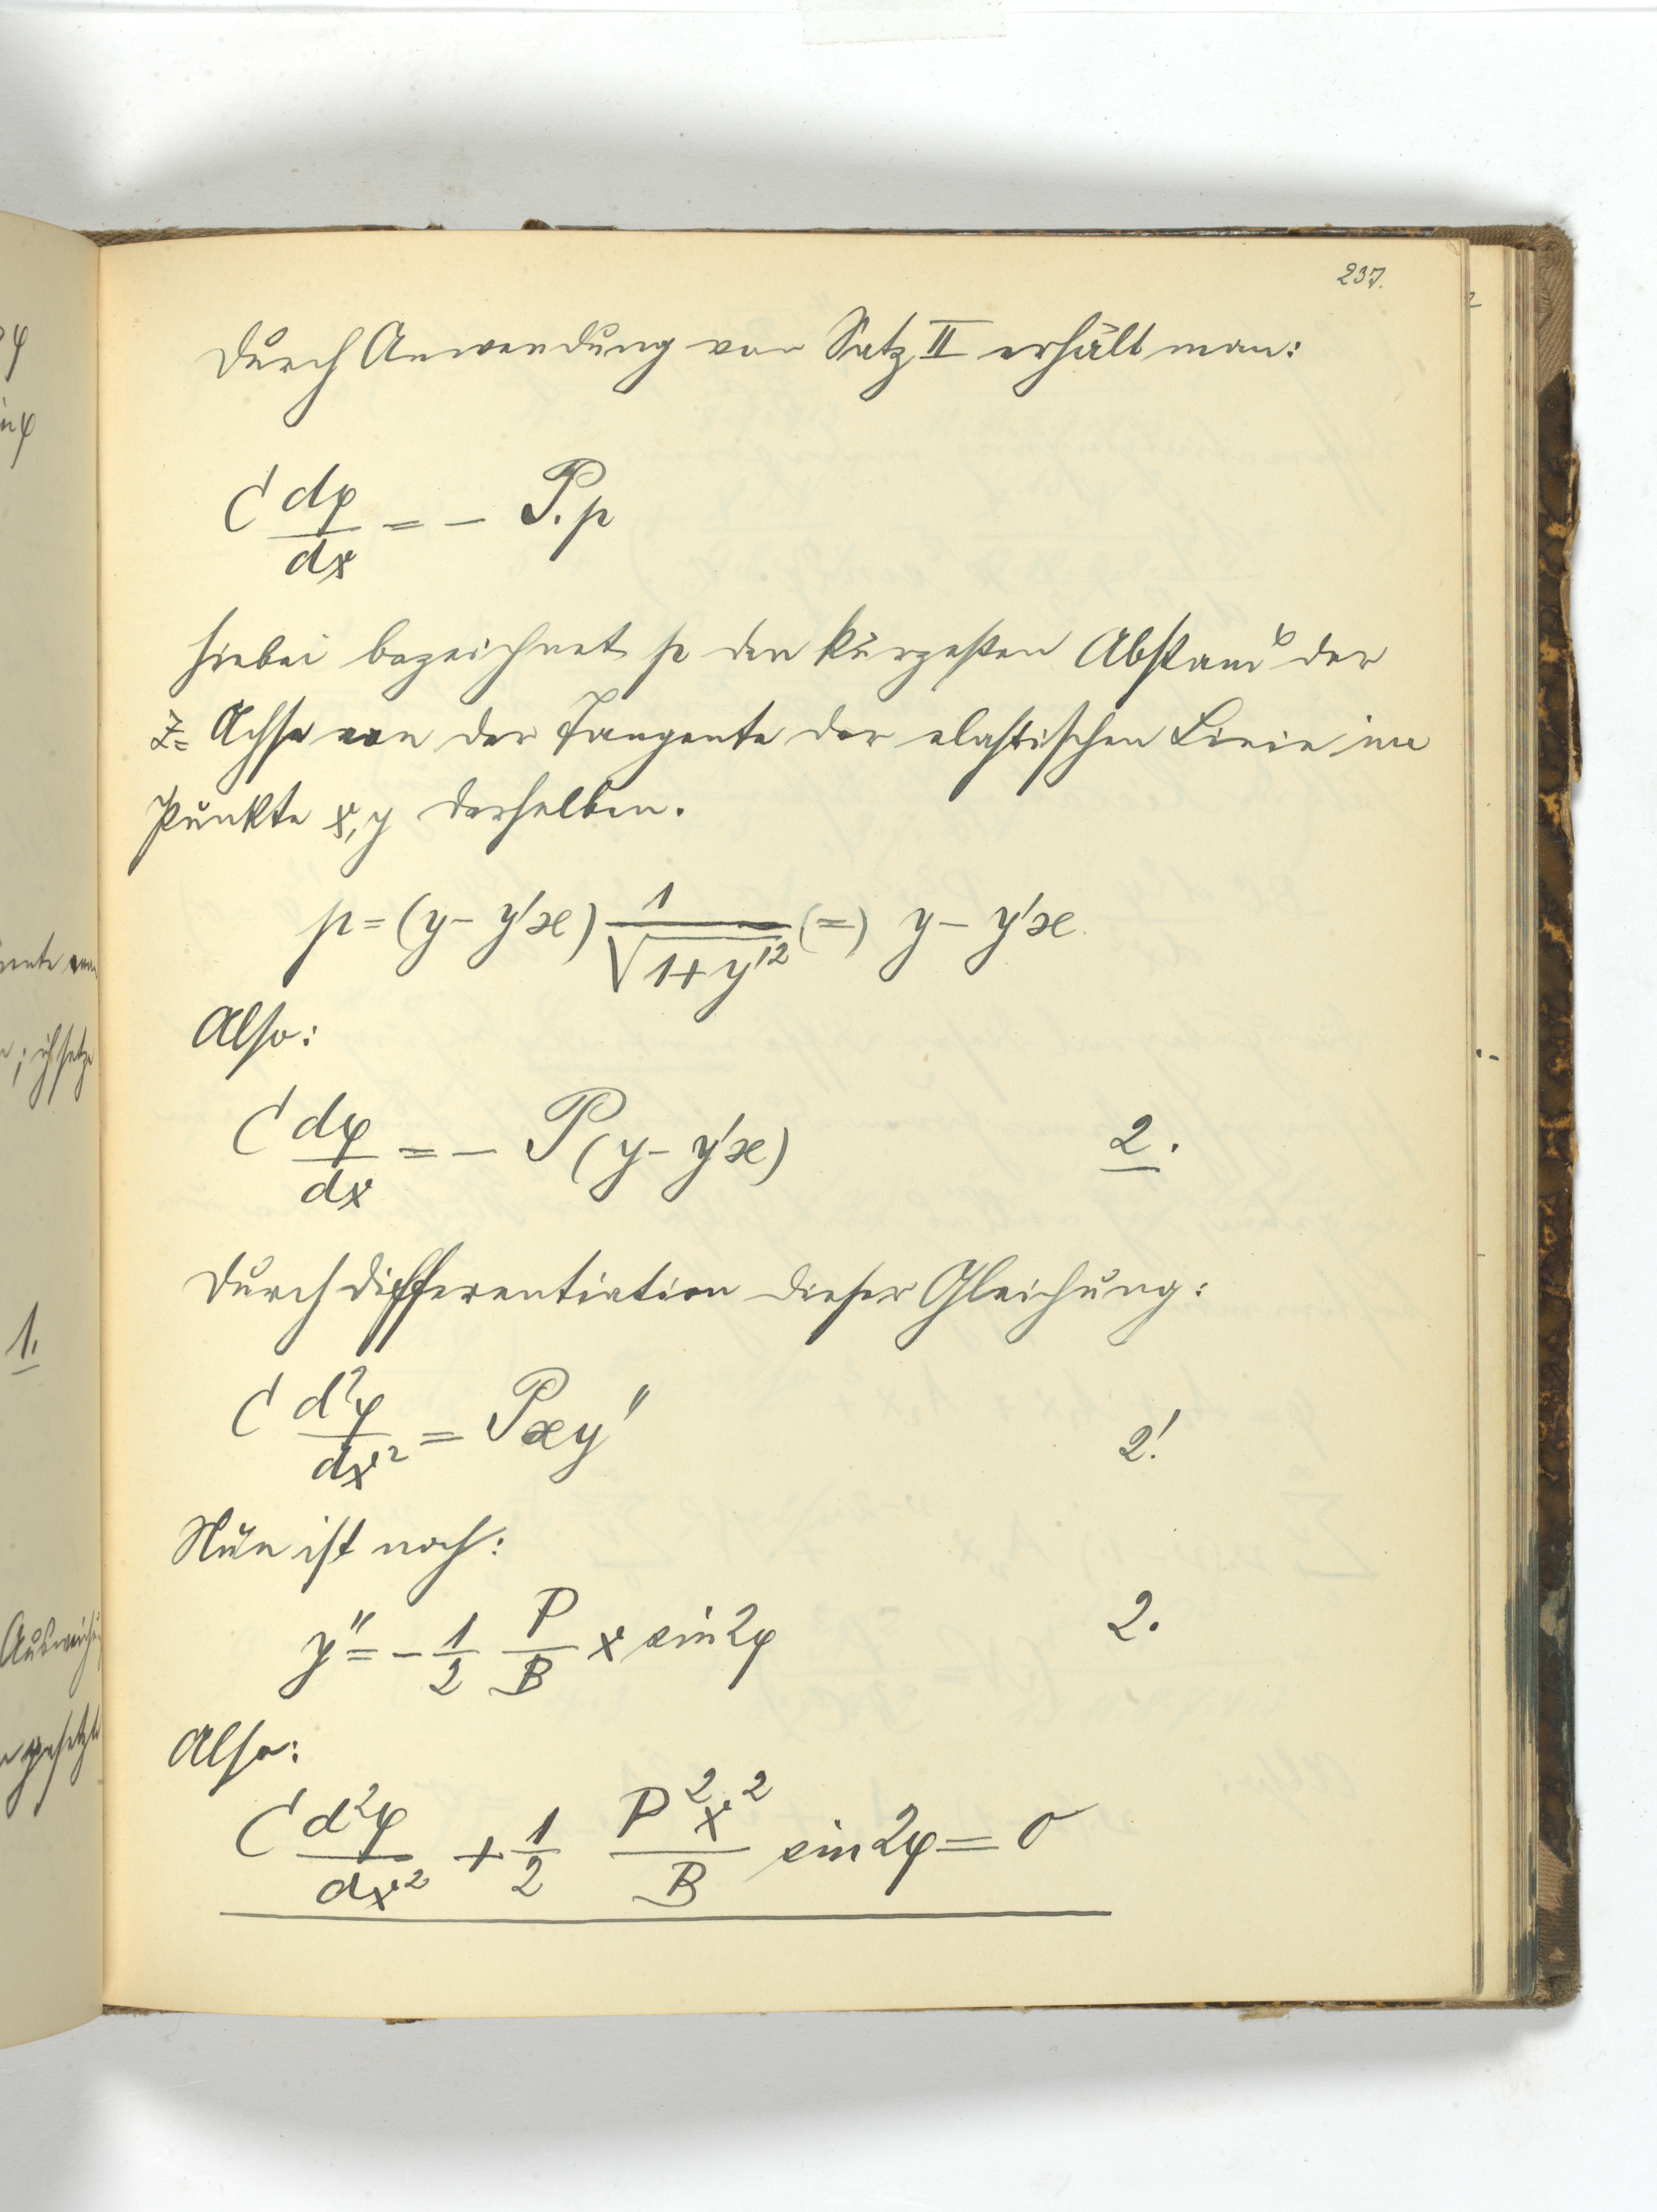 237.
Durch Anwendung von Satz II erhält man:
C dφ/dx = - P.p
hiebei bezeichnet p den kürzesten Abstand der
Z= Achse von der Tangente der elastischen Linie im
Punkte x, y derselben.
p = (y - y'x) 1/√(1+y'²) (=) y - y'x
Also:
C dφ/dx = - P(y - y'x) 2.
Durch Differentiation dieser Gleichung:
C d²φ/dx² = Pxy'' 2!
Nun ist noch:
y'' = - 1/2 P/B x sin2φ 2.
Also:
C d²φ/dx² + 1/2 P²x²/B sin2φ = 0